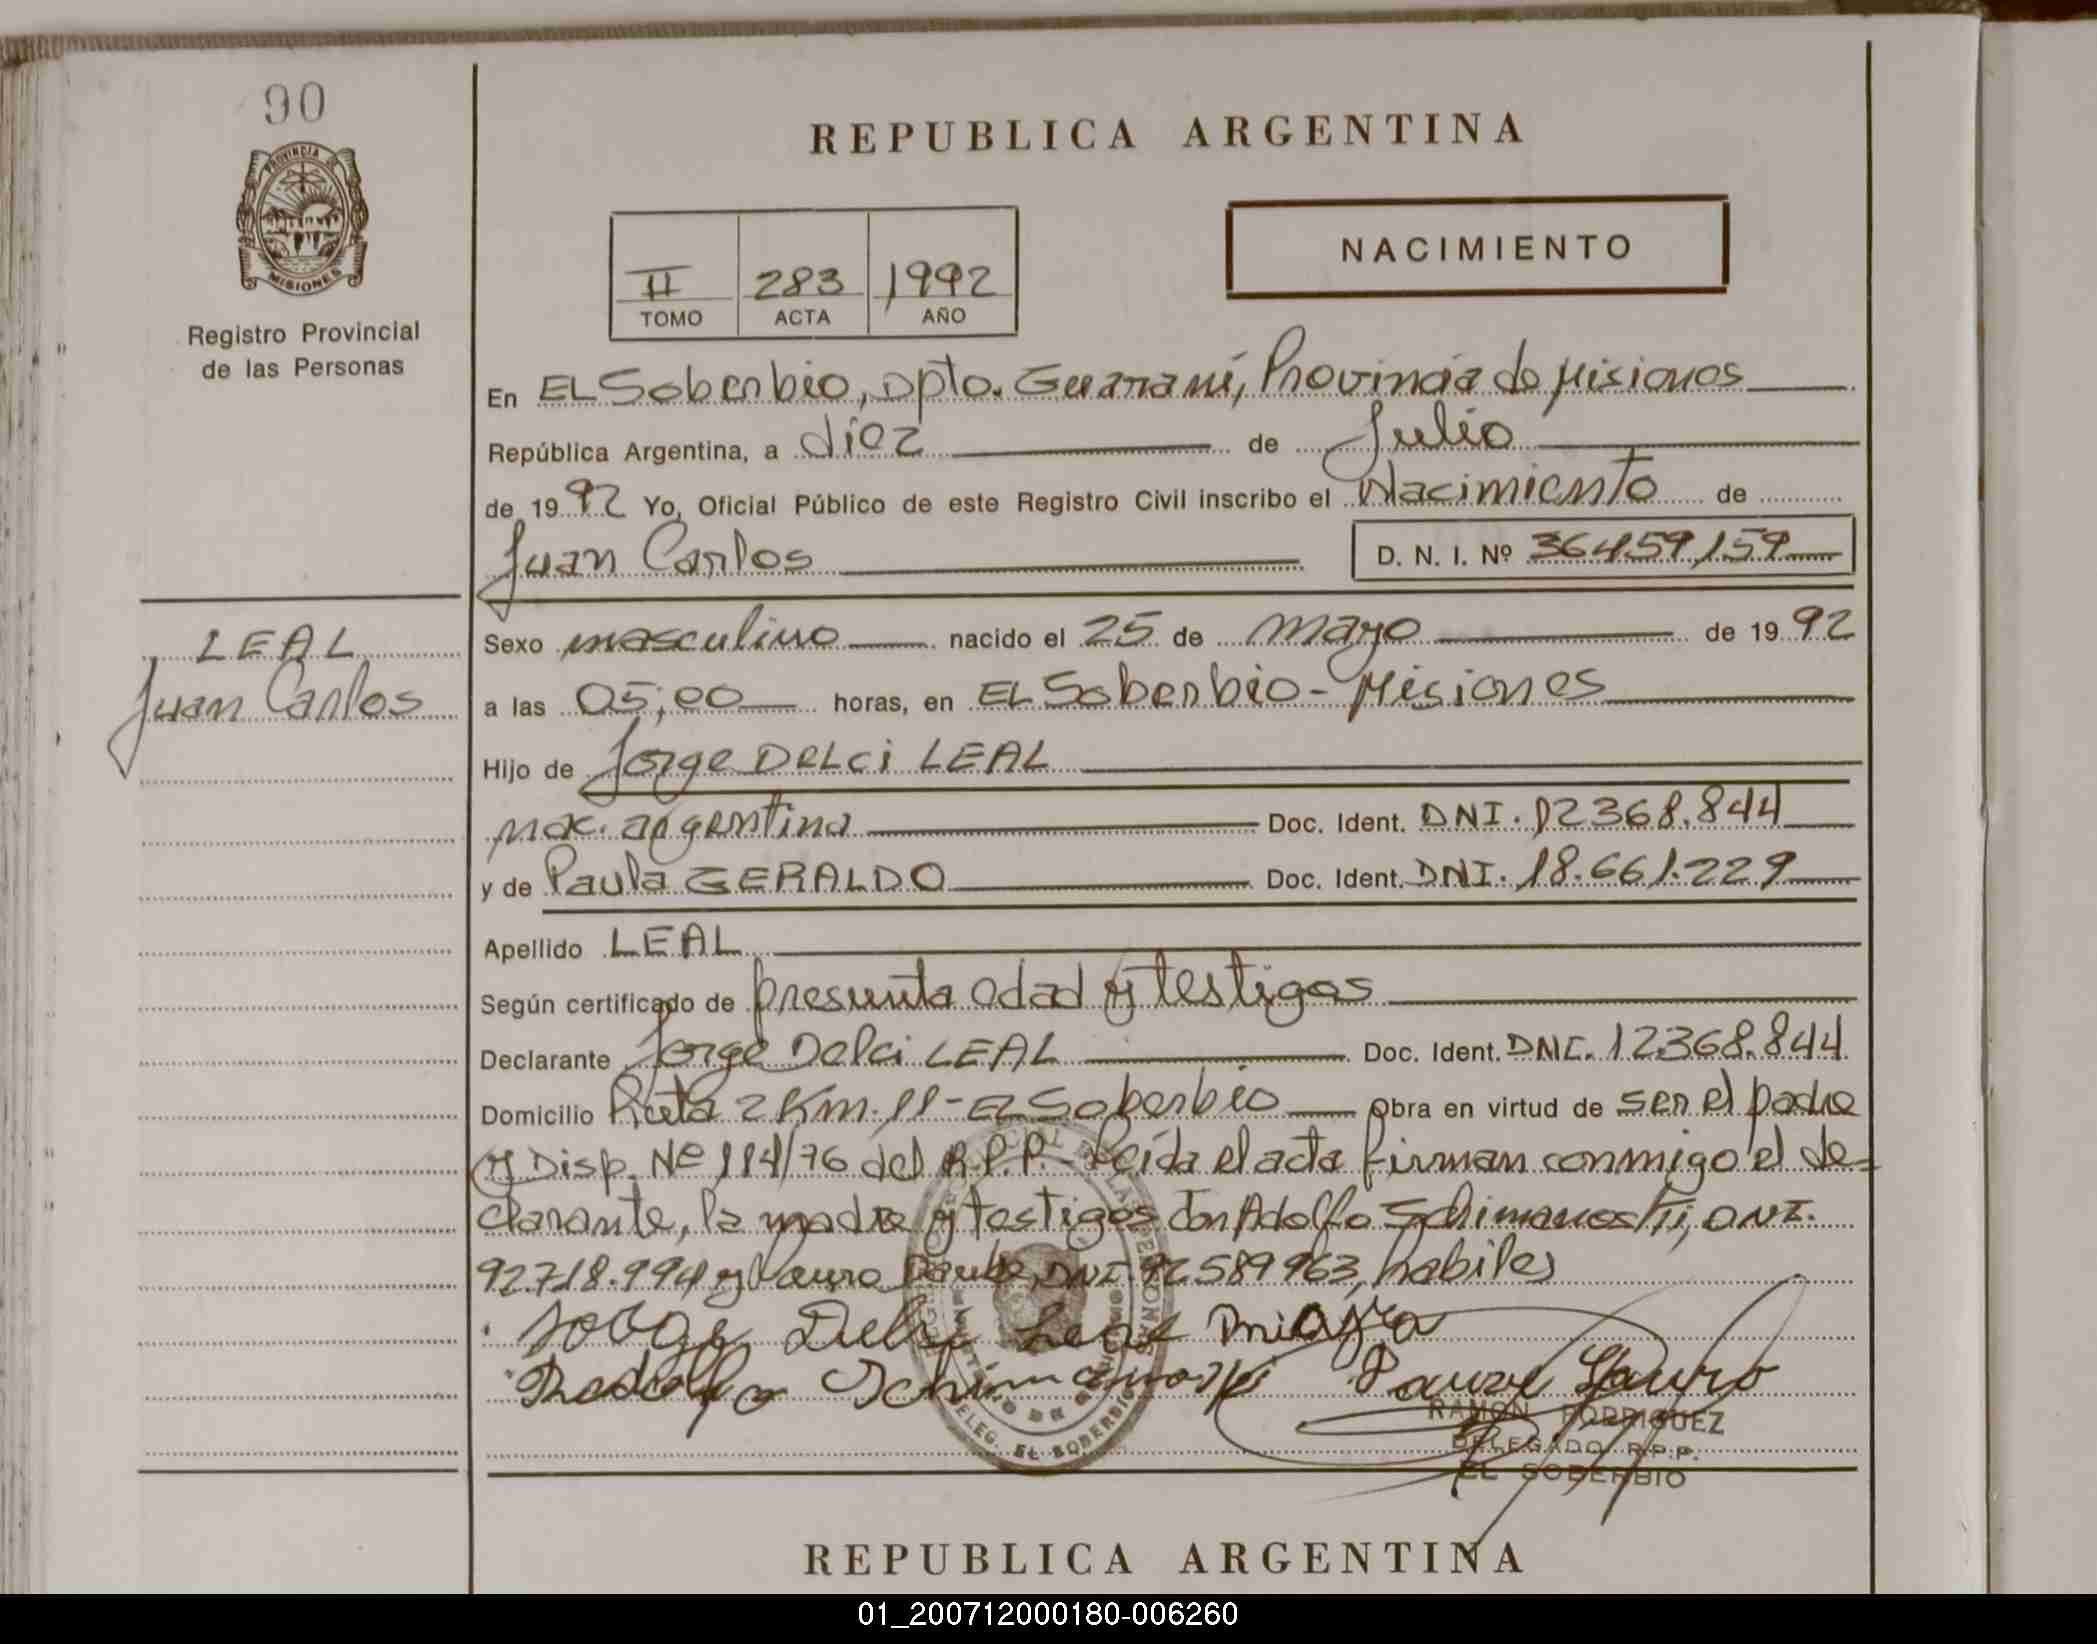 90
PROVINCIA DE
MISIONES
Registro Provincial
de las Personas
REPUBLICA ARGENTINA
II 283 1992
TOMO ACTA AÑO
NACIMIENTO
En EL Soberbio, Dpto. Guaraní, Provincia de Misiones
República Argentina, a diez de Julio
de 1992 Yo, Oficial Público de este Registro Civil inscribo el Nacimiento de
Juan Carlos D. N. I. Nº 36459159
LEAL
Juan Carlos
Sexo masculino nacido el 25 de mayo de 1992
a las 05;00 horas, en EL Soberbio - Misiones
Hijo de Jorge DELCi LEAL
nac. argentina Doc. Ident. DNI. 12368.844
y de Paula GERALDO Doc. Ident. DNI. 18.661.229
Apellido LEAL
Según certificado de presunta edad y testigos
Declarante Jorge Delci LEAL Doc. Ident. DNI. 12368.844
Domicilio Ruta 2 Km. 11 - El Soberbio Obra en virtud de ser el padre
y Disp. Nº 114/76 del R.P.P. - Leída el acta firman conmigo el de=
clarante, la madre y testigos don Adolfo Schimanoski, DNI.
92.718.994 y Lauro DNI. 92589963, habiles
Delci Leal
Schimanoski Lauro
RAMON RODRIGUEZ
DELEGADO R.P.P.
EL SOBERBIO
DELEG. EL SOBERBIO
REPUBLICA ARGENTINA
01_200712000180-006260